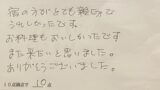 宿の方がとても親切で
うれしかったです。
お料理もおいしかったです
また来たいと思いました。
ありがとうございました。
10点満点で 10点